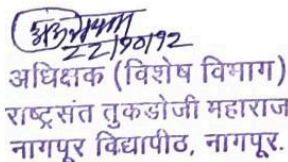 22/10/12
अधिक्षक (विशेष विभाग)
राष्ट्रसंत तुकडोजी महाराज
नागपूर विद्यापीठ, नागपूर.